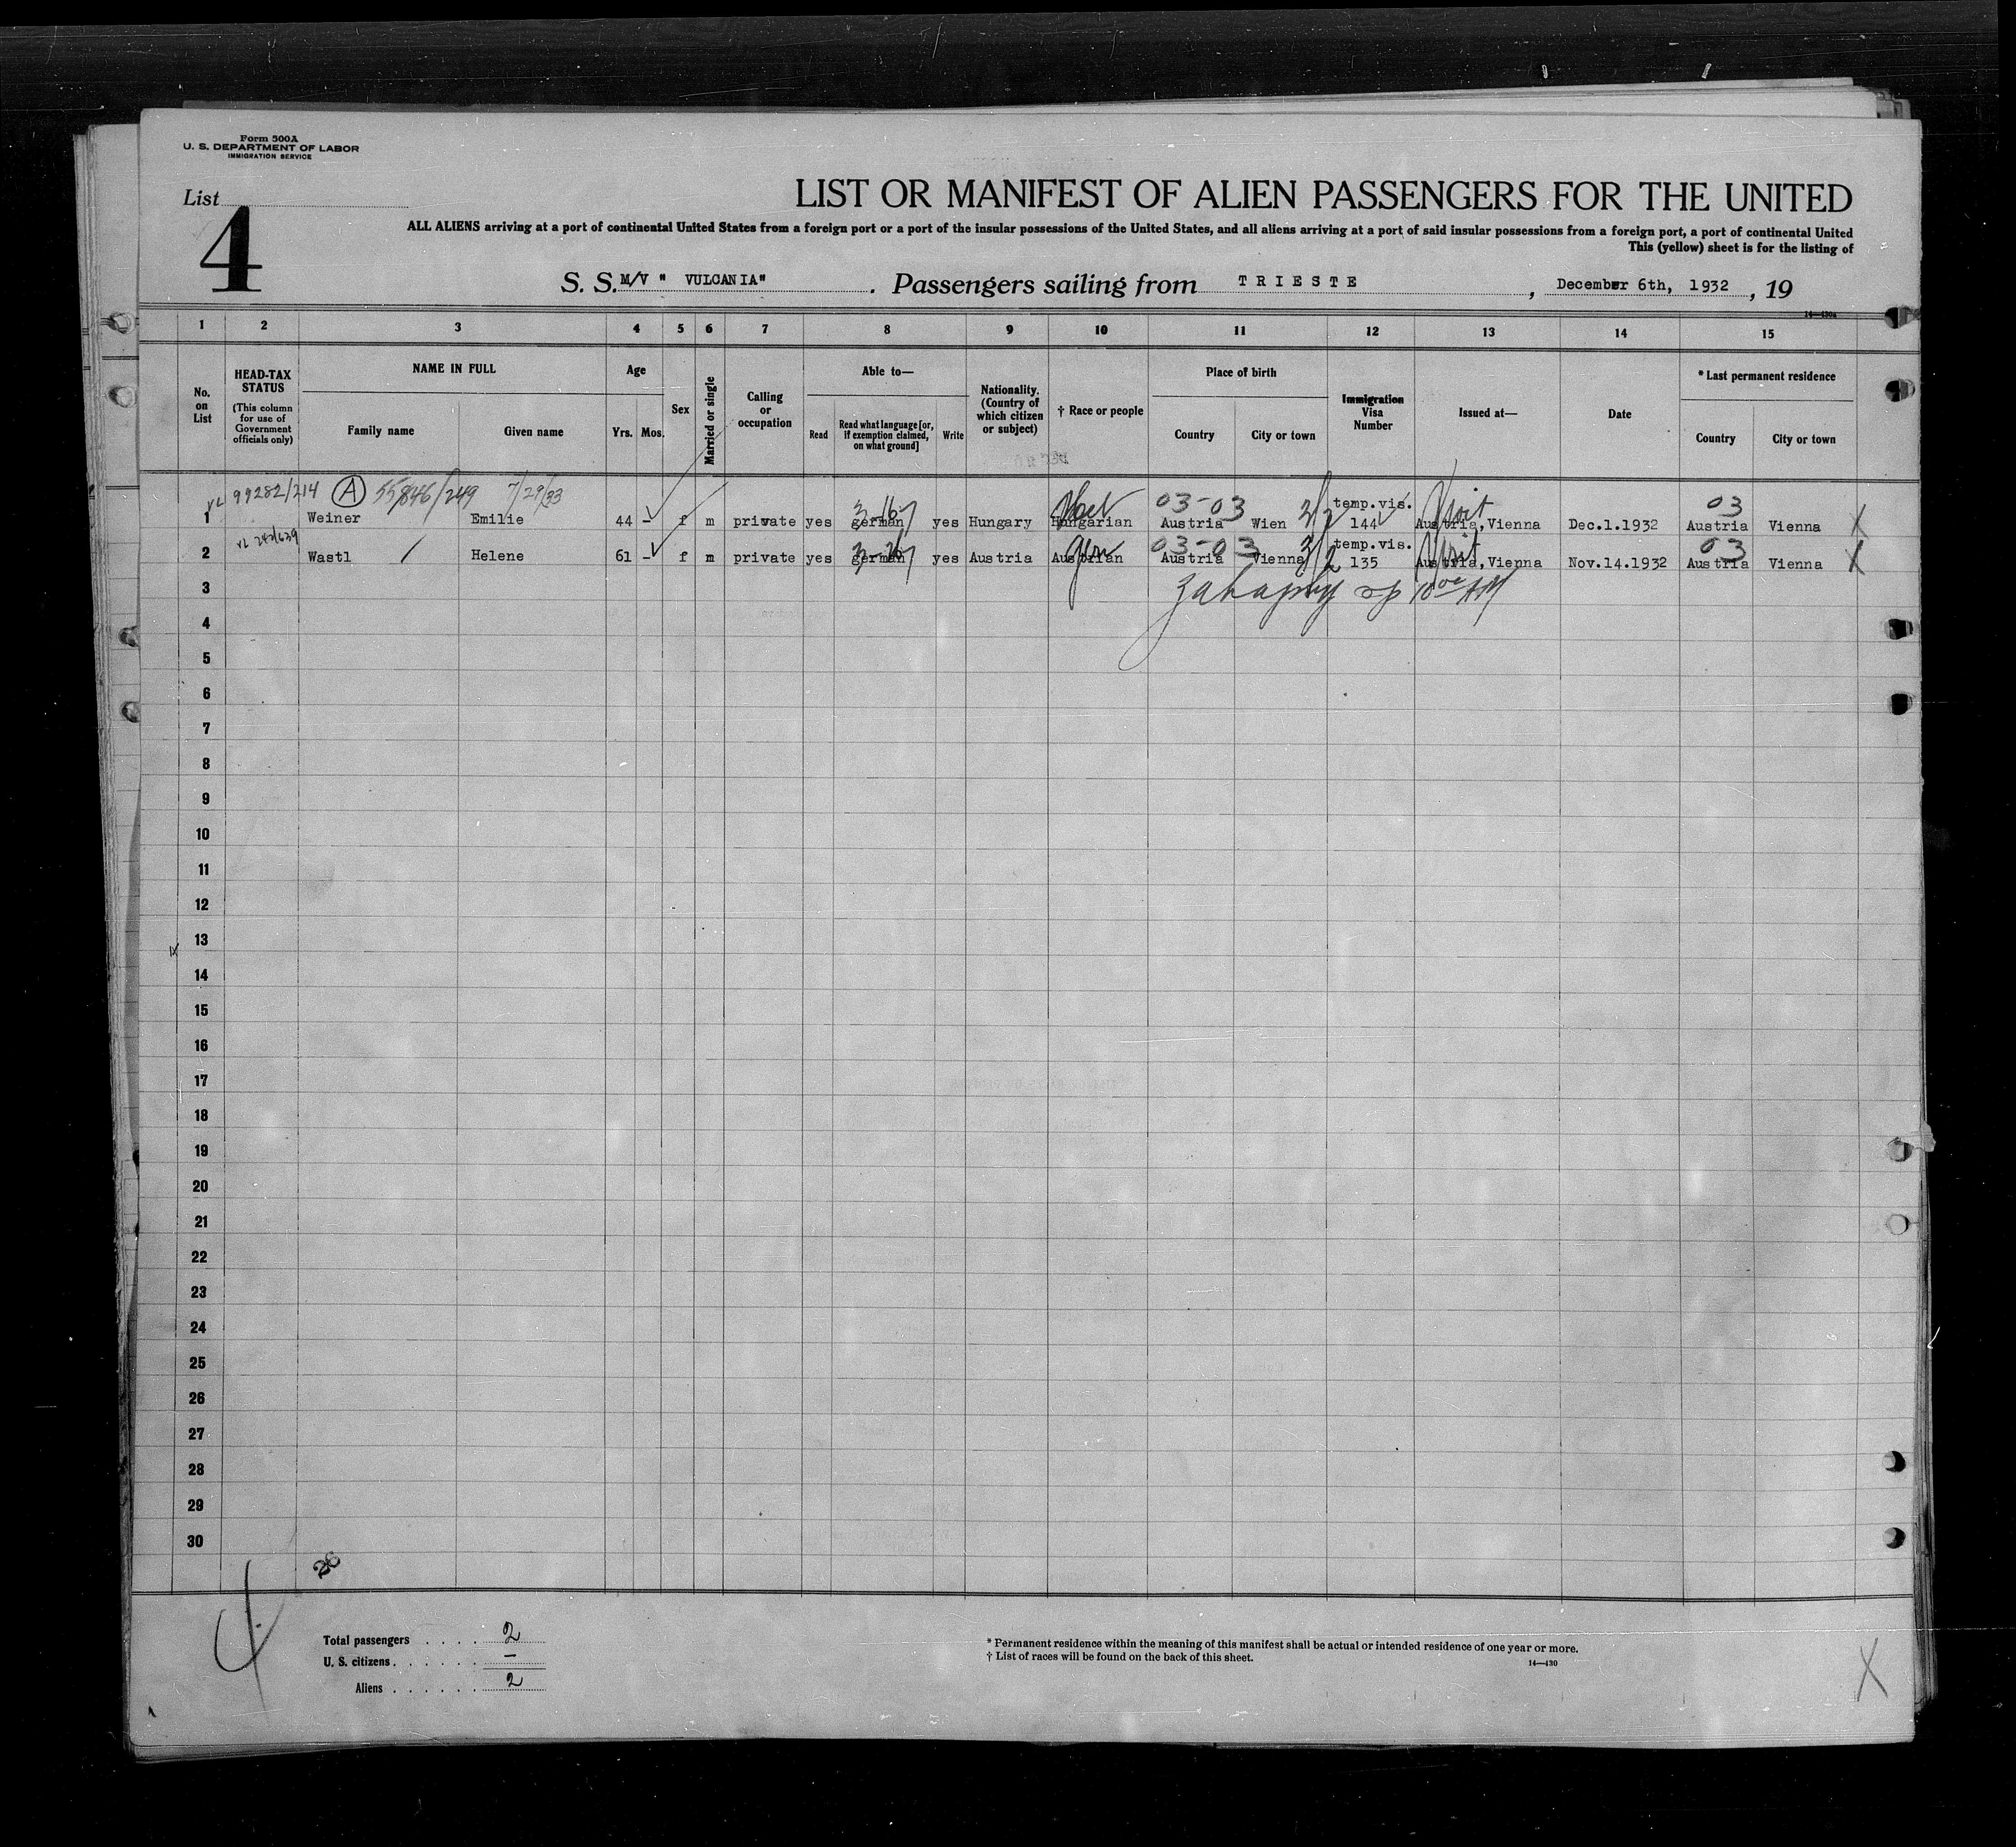 Form 500A
U. S. DEPARTMENT OF LABOR
IMMIGRATION SERVICE
List
4
LIST OR MANIFEST OF ALIEN PASSENGERS FOR THE UNITED
ALL ALIENS arriving at a port of continental United States from a foreign port or a port of the insular possessions of the United States, and all aliens arriving at a port of said insular possessions from a foreign port, a port of continental United
This (yellow) sheet is for the listing of
S. S. M/V " VULCANIA" . Passengers sailing from TRIESTE , December 6th, 1932 , 19
14—430a
1 2 3 4 5 6 7 8 9 10 11 12 13 14 15
No. on List
HEAD-TAX STATUS
(This column for use of Government officials only)
NAME IN FULL
Family name Given name
Age
Yrs. Mos.
Sex
Married or single
Calling or occupation
Able to—
Read Read what language [or, if exemption claimed, on what ground] Write
Nationality. (Country of which citizen or subject)
† Race or people
Place of birth
Country City or town
Immigration Visa Number
Issued at—
Date
* Last permanent residence
Country City or town
99282/214 A 55846/249 7/29/33
03-03 temp.vis. Visit 03
1 Weiner Emilie 44 - f m private yes german yes Hungary Hungarian Austria Wien 144 Austria,Vienna Dec.1.1932 Austria Vienna X
03-03 temp.vis. Visit 03
2 Wastl Helene 61 - f m private yes german yes Austria Austrian Austria Vienna 135 Austria,Vienna Nov.14.1932 Austria Vienna X
3
4
5
6
7
8
9
10
11
12
13
14
15
16
17
18
19
20
21
22
23
24
25
26
27
28
29
30
Total passengers . . . . 2
U. S. citizens . . . . . . —
Aliens . . . . . . 2
* Permanent residence within the meaning of this manifest shall be actual or intended residence of one year or more.
† List of races will be found on the back of this sheet.
14—430
X